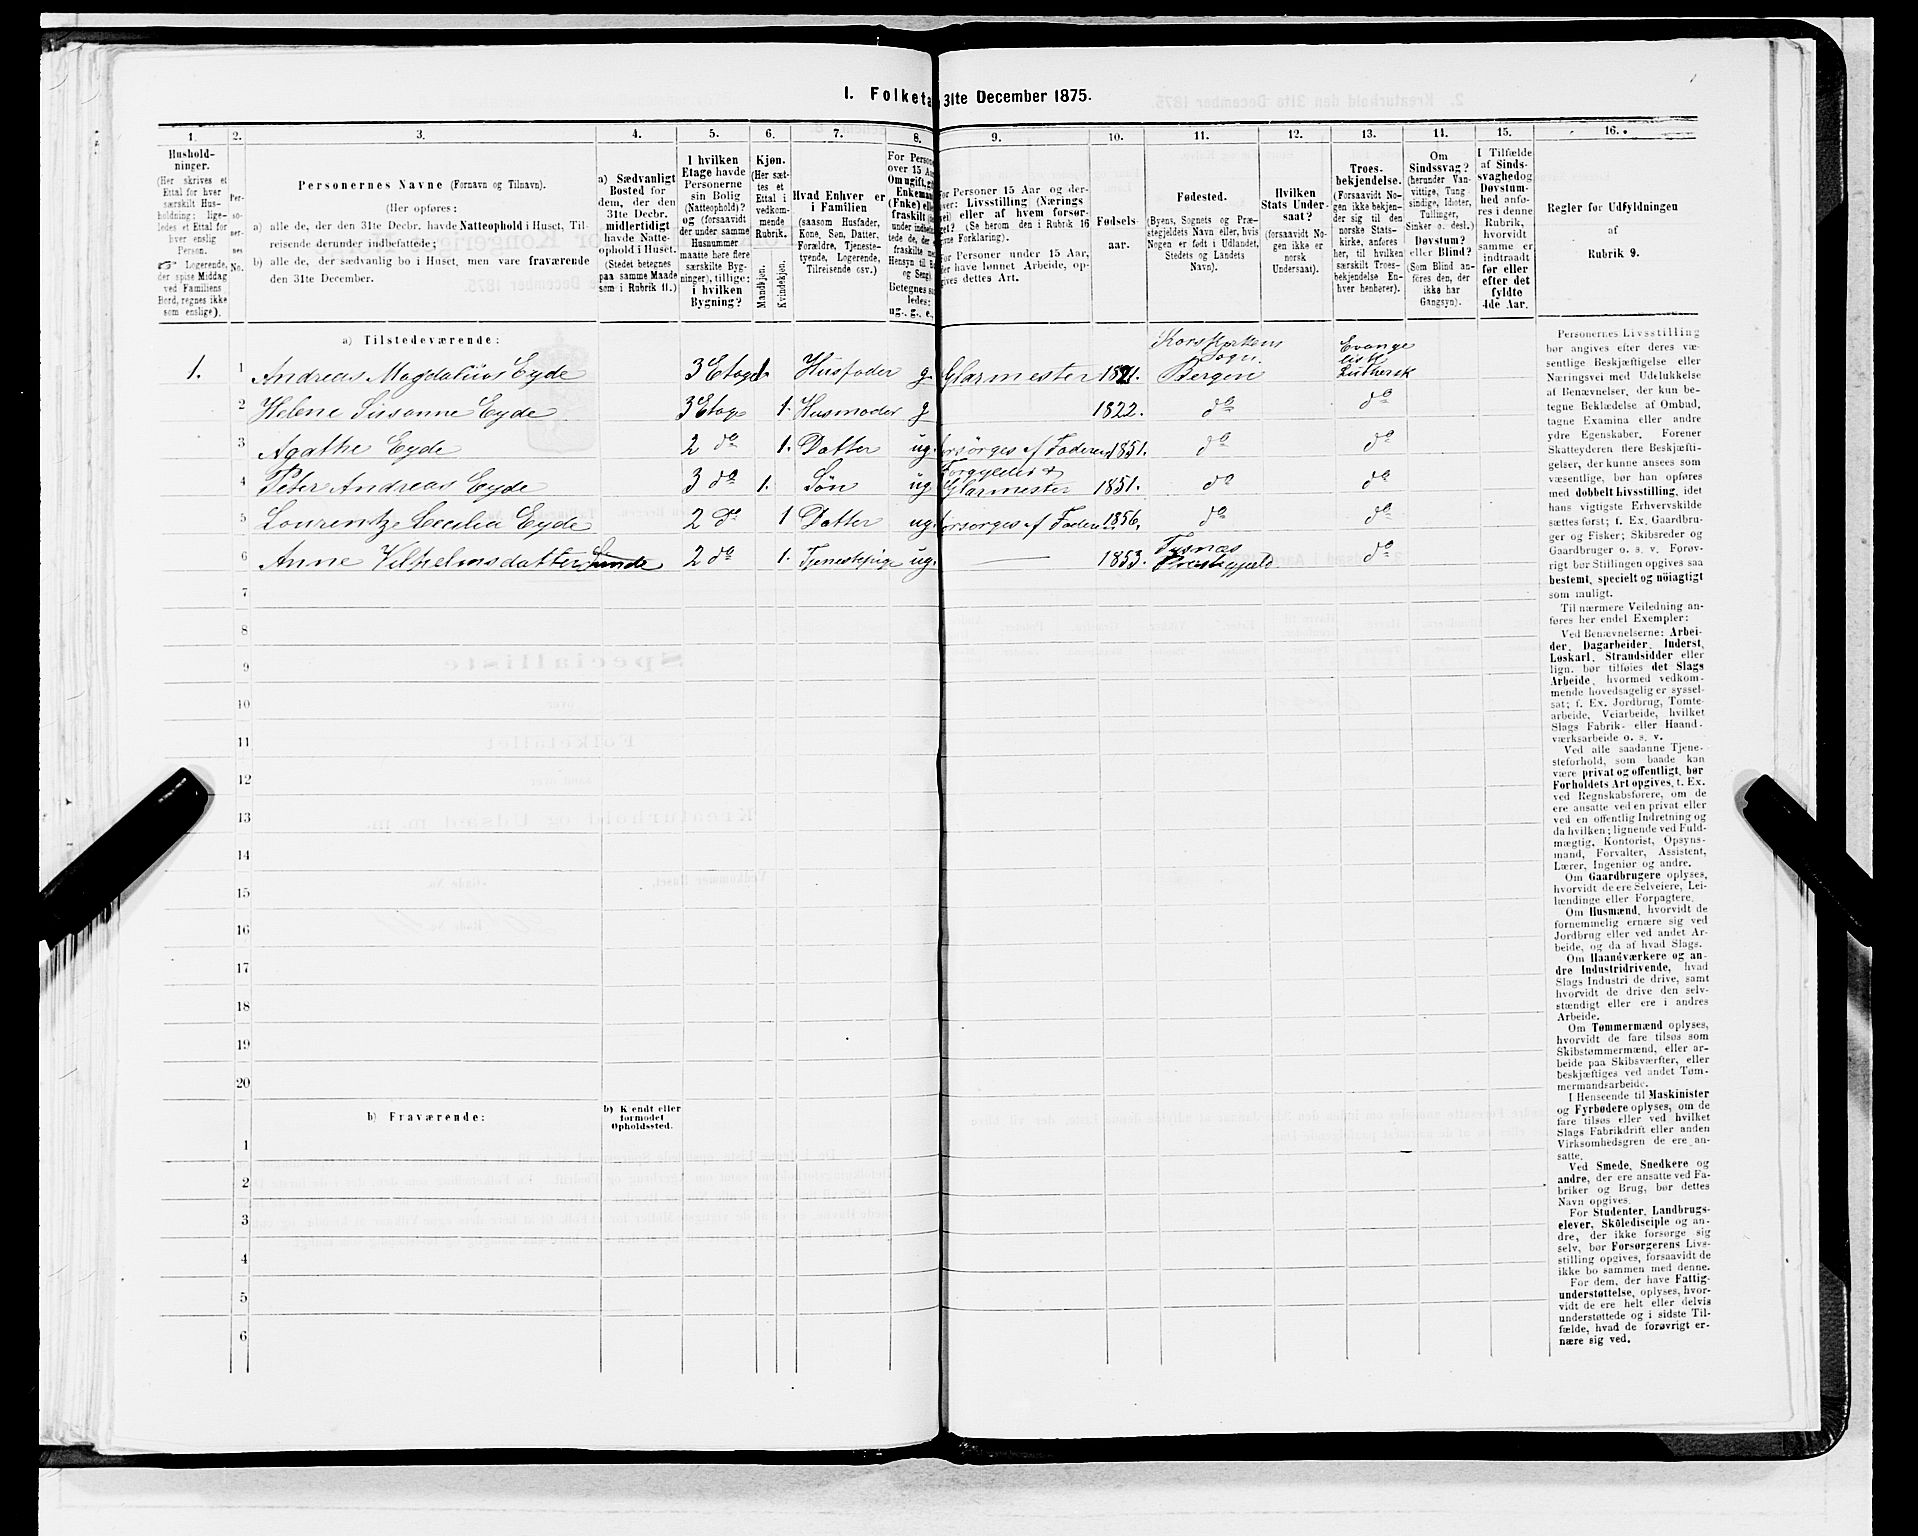 I. Folketa 31te December 1875.
1. 2. 3. 4. 5. 6. 7. 8. 9. 10. 11. 12. 13. 14. 15. 16.
Hushold-
ninger.
(Her skrives et
Ettal for hver
særskilt Hus-
holdning; lige-
ledes et Ettal for
hver enslig
Person.
☞ Logerende,
der spise Middag
ved Familiens
Bord, regnes ikke
som enslige).
Per-
so-
ner-
nes
No.
Personernes Navne (Fornavn og Tilnavn).
(Her opføres:
a) alle de, der den 31te Decbr. havde Natteophold i Huset, Til-
reisende derunder indbefattede;
b) alle de, der sædvanlig bo i Huset, men vare fraværende
den 31te December.
a) Sædvanligt
Bosted for
dem, der den
31te Decbr.
midlertidigt
havde Natte-
ophold i Huset.
(Stedet betegnes
paa samme Maade
som i Rubrik 11.)
I hvilken
Etage havde
Personerne
sin Bolig
(Natteophold)?
og (forsaavidt
der under samme
Husnummer
maatte høre flere
særskilte Byg-
ninger), tillige:
i hvilken
Bygning?
Kjøn.
(Her sæt-
tes et
Ettal i
vedkom-
mende
Rubrik.
Mandkjøn.
Kvindekjøn.
Hvad Enhver er
i Familien
(saasom Husfader,
Kone, Søn, Datter,
Forældre, Tjeneste-
tyende, Logerende,
Tilreisende osv.)
For Persone
over 15 Aa
Om ugift, g
Enkeman
(Enke) elle
fraskilt
under indbefat-
tede de, der e
fraskilte me
Hensyn til B
og Seng).
Betegnes sa
ledes:
ug., g., e.,
For Personer 15 Aar og der-
over: Livsstilling (Nærings
vei) eller af hvem forsør-
get? (Se herom den i Rubrik 16
givne Forklaring).
For Personer under 15 Aar,
der have lønnet Arbeide, op-
gives dettes Art.
Fødsels-
aar.
Fødested.
(Byens, Sognets og Præ-
stegjeldets Navn eller, hvis
Nogen er født i Udlandet,
Stedets og Landets
Navn).
Hvilken
Stats Under-
saat?
(forsaavidt No-
gen ikke er
norsk
Undersaat).
Troes-
bekjendelse.
(Forsaavidt No-
gen ikke bekjen-
der sig til den
norske Stats-
kirke, anføres
her, til hvilken
særskilt Troes-
bekjendelse En-
hver henhører).
Om
Sindssvag?
(herunder Van-
vittige, Tung
sindige, Idioter,
Tullinger,
Sinker o. desl.)
Døvstum?
eller Blind?
(Som Blind an-
føres den, der
ikke har
Gangsyn).
I Tilfælde
af Sinds-
svaghed og
Døvstum-
hed anfø-
res i denne
Rubrik,
hvorvidt
samme er
indtraadt
før eller
efter det
fyldte
4de Aar.
Regler for Udfyldningen
af
Rubrik 9.
a) Tilstedeværende:
1. 1 Andreas Magdalius Eyde 3 Etage 1. Husfader g. Glarmester 1821. Korskirkens Sogn. Bergen Evange lisk Luthersk
2 Helene Susanne Eyde 3 Etage 1. Husmoder g 1822. do do
3 Agathe Eyde 2 do 1. Datter ug. forsørges af Faderen 1851. do do
4 Peter Andreas Eyde 3 do 1. Søn ug Forgylder & Glarmester 1851. do do
5 Lourentze Cecilia Eyde 2 do 1 Datter ug. forsørges af Faderen 1856. do do
6 Anne Vilhelmsdatter Lunde 2 do 1. Tjenestepige ug. — 1853. Tysnæs Præstegjeld do
7
8
9
10
11
12
13
14
15
16
17
18
19
20
b) Fraværende:
b) Kjendt eller
formodet
Opholdssted.
1
2
3
4
5
6
Personernes Livsstilling
bør angives efter deres væ-
sentlige Beskjæftigelse eller
Næringsvei med Udelukkelse
af Benævnelser, der kun be-
tegne Beklædelse af Ombud,
tagne Examina eller andre
ydre Egenskaber. Forener
Skatteyderen flere Beskjæfti-
gelser, der kunne ansees som
væsentlige, bør han opføres
med dobbelt Livsstilling, idet
hans vigtigste Erhvervskilde
sættes først; f. Ex. Gaardbru-
ger og Fisker; Skibsreder og
Gaardbruger o. s. v. Forøv-
rigt bør Stillingen opgives saa
bestemt, specielt og nöiagtigt
som muligt.
Til nærmere Veiledning an-
føres her endel Exempler:
Ved Benævnelserne: Arbei-
der, Dagarbeider, Inderst,
Løskarl, Strandsidder eller
lign. bør tilføies det Slags
Arbeide, hvormed vedkom-
mende hovedsagelig er syssel-
sat; f. Ex. Jordbrug, Tomte-
arbeide, Veiarbeide, hvilket
Slags Fabrik- eller Haand-
værksarbeide o. s. v.
Ved alle saadanne Tjene-
steforhold, som baade kan
være privat og offentligt, bør
Forholdets Art opgives, f. Ex.
ved Regnskabsførere, om de
ere ansatte ved en privat eller
ved en offentlig Indretning og
da hvilken; lignende ved Fuld-
mægtig, Kontorist, Opsyns-
mand, Forvalter, Assistent,
Lærer, Ingeniør og andre.
Om Gaardbrugere oplyses,
hvorvidt de ere Selveiere, Lei-
lændinge eller Forpagtere.
Om Husmænd, hvorvidt de
fornemmelig ernære sig ved
Jordbrug eller ved andet Ar-
beide, og da af hvad Slags.
Om Haandværkere og an-
dre Industridrivende, hvad
Slags Industri de drive, samt
hvorvidt de drive den selv-
stændigt eller ere i andres
Arbeide.
Om Tømmermænd oplyses,
hvorvidt de fare tilsøs som
Skibstømmermænd, eller ar-
beide paa Skibsværfter, eller
beskjæftiges ved andet Tøm-
mermandsarbeide.
I Henseende til Maskinister
og Fyrbødere oplyses, om de
fare tilsøs eller ved hvilket
Slags Fabrikdrift eller anden
Virksomhedsgren de ere an-
satte.
Ved Smede, Snedkere og
andre, der ere ansatte ved Fa-
briker og Brug, bør dettes
Navn opgives.
For Studenter, Landbrugs-
elever, Skoledisciple og an-
dre, der ikke forsørge sig
selv, bør Forsørgerens Livs-
stilling opgives, forsaavidt de
ikke bo sammen med denne.
For dem, der have Fattig-
understøttelse, oplyses, hvor-
vidt de ere helt eller delvis
understøttede og i sidste Til-
fælde, hvad de forøvrigt er-
nære sig ved.